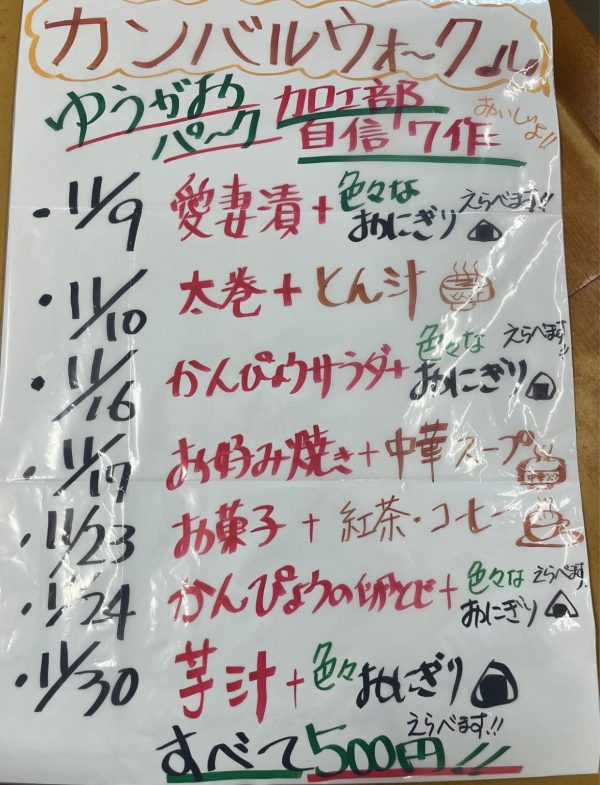 カンバルウォ〜クル
ゆうがおの 加工部 おいしいよ!!
パ〜ク 自信ワ作
・11/9 愛妻漬+色々なおにぎり えらべます!!
・11/10 太巻+とん汁
・11/16 かんぴょうサラダ+色々なおにぎり えらべます!!
・11/17 お好み焼き+中華スープ
・11/23 お菓子+紅茶・コーヒー
・11/24 かんぴょうの卵とじ+色々なおにぎり えらべます
・11/30 芋汁+色々おにぎり
えらべます!!
すべて500円!!